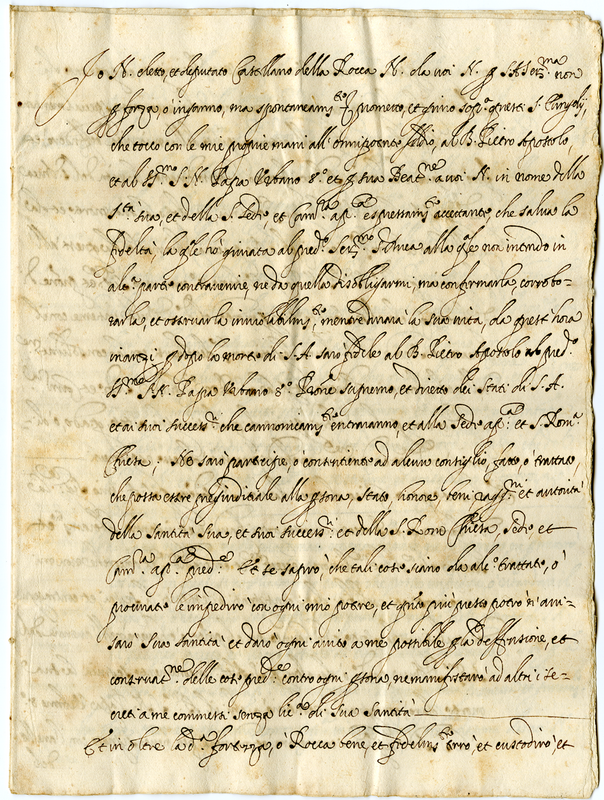 Io N. eletto, et deputato Castellano della Rocca N. da voi N. p S.A. Ser.ma non
p forza, o inganno, ma spontaneam.te prometto, et giuro sop.a questi S. Evangelij,
che tocco con le mie proprie mani all' omnipotente Iddio, al B. Pietro Apostolo,
et al S.mo S. N. Papa Urbano 8.o et p sua Beat.ne a voi N. in nome della
S.tà sua, et della S. Sede, et Cam.ra ap.ca espressam.te accettante, che salva la
fideltà, la q.le hò giurata al pred.o Ser.mo alla q.le non intendo in
alc.a parte contravenire, ne da quella disobligarmi, ma confirmarla, corrobo-
rarla, et osservarla inviolabilm.te, mentre durarà la sua vita, da quest' hora
inanzi, p dopo la morte di S.A. sarò fidele al B. Pietro Apostolo al pred.o
S.mo S.N. Papa Urbano 8.o Prone supremo, et diretto dei Stati di S.A.
et ai suoi success.ri che canonicam.te entraranno, et alla Sede ap.ca et S. Rom.a
Chiesa; Ne sarò partecipe, ò contentiente ad alcun consiglio, fatto, o trattato,
che possa essere pregiuditiale alla psona, stato, honore, beni, rag.ni et autorità
della Santità Sua, et suoi success.ri et della S. Rom.a Chiesa, Sede, et
Cam.ra ap.ca pred.e Et se saprò, che tali cose siano da alc.o trattate, ò
procurate le impedirò con ogni mio potere, et q.nto più presto potrò n' avi-
sarò Sua Santità et darò ogni aiuto a me possibile p la deffensione, et
conservat.ne delle cose pred.e contro ogni psona, ne manifestarò ad altri i se-
creti a me commessi senza lic.a di Sua Santità
Et in oltre la d.a fortezza, ò Rocca bene, et fidelm.te terrò, et custodirò, et